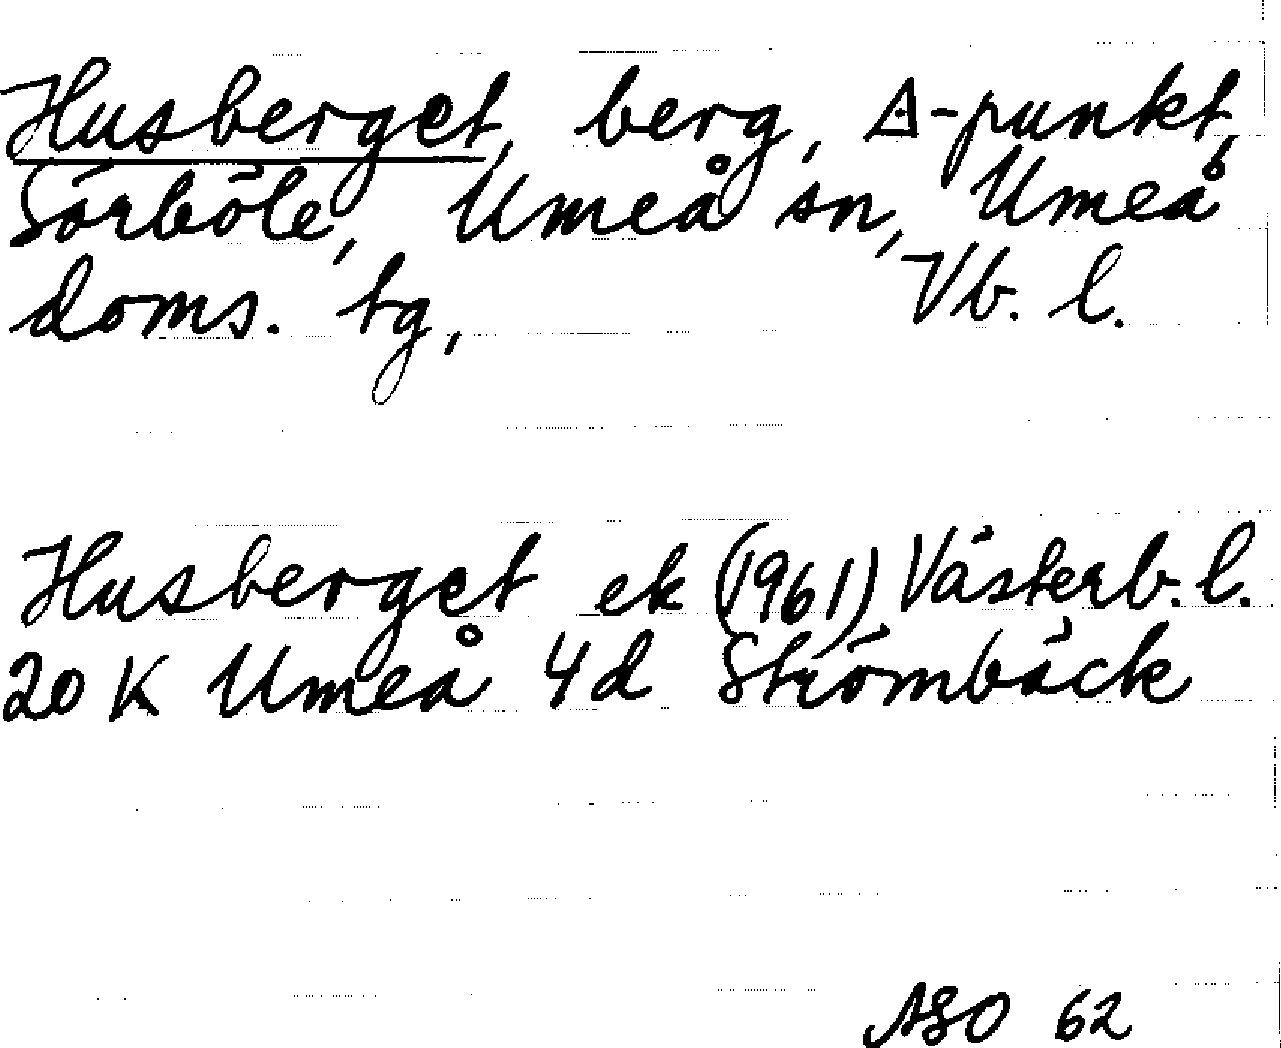 Husberget, berg, ∆-punkt,
Sörböle, Umeå sn, Umeå
doms. tg, Vb. l.
Husberget ek (1961) Västerb. l.
20 K Umeå 4d Strömbäck
ASO 62